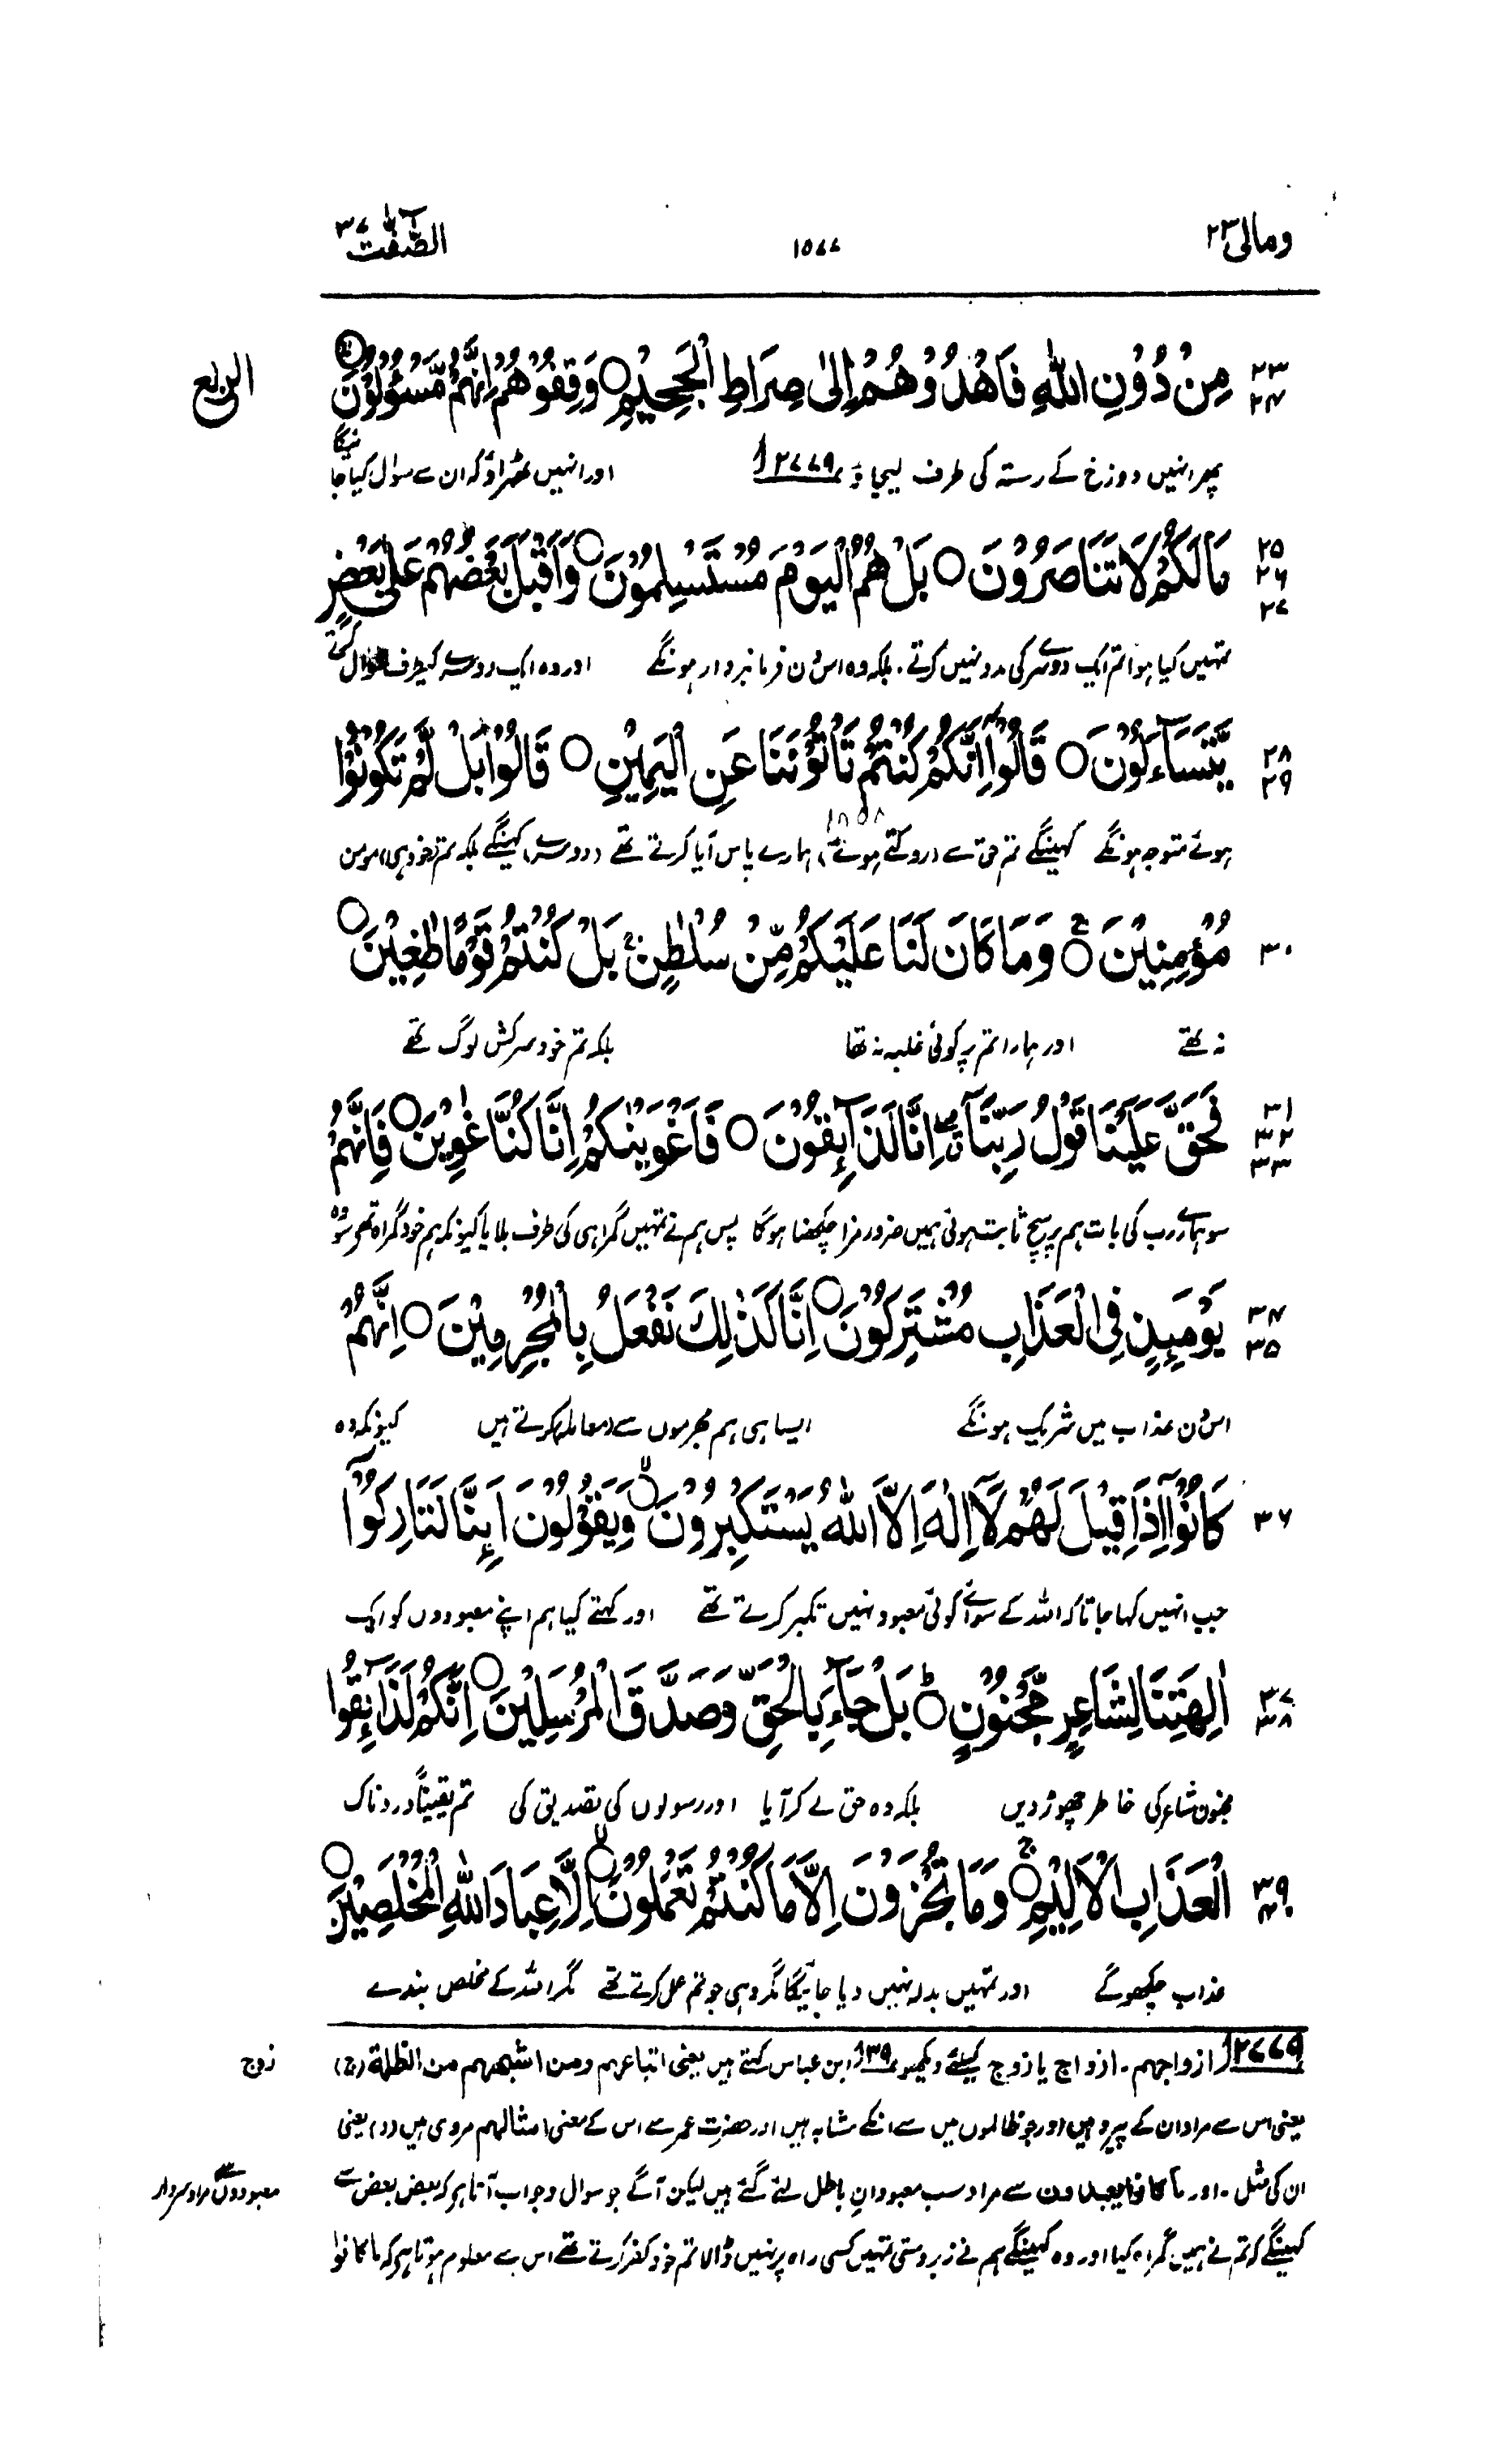 ومالی ۲۳
۱۵۷۷
الصّٰٓفّٰت ۳۷
۲۳
۲۴
مِنْ دُوْنِ اللّٰهِ فَاهْدُوْهُمْ اِلٰى صِرَاطِ الْجَحِيْمِ ○ وَقِفُوْهُمْ اِنَّهُمْ مَّسْـُٔوْلُوْنَ ○
الربع
پھر انہیں دوزخ کے رستہ کی طرف لیجاؤ ۲۷۷۹ اور انہیں ٹھہراؤ کہ ان سے سوال کیا جائیگا
۲۵
۲۶
۲۷
مَا لَكُمْ لَا تَنَاصَرُوْنَ ○ بَلْ هُمُ الْيَوْمَ مُسْتَسْلِمُوْنَ ○ وَاَقْبَلَ بَعْضُهُمْ عَلٰى بَعْضٍ
تمہیں کیا ہوا تم ایک دوسرے کی مدد نہیں کرتے۔ بلکہ وہ اس دن فرمانبردار ہونگے اور وہ ایک دوسرے کیطرف سوال کرتے
۲۸
۲۹
يَّتَسَآءَلُوْنَ ○ قَالُوْٓا اِنَّكُمْ كُنْتُمْ تَاْتُوْنَنَا عَنِ الْيَمِيْنِ ○ قَالُوْا بَلْ لَّمْ تَكُوْنُوْا
ہوئے متوجہ ہونگے کہینگے تم حق سے (روکتے ہوئے) ہمارے پاس آیا کرتے تھے (دوسرے) کہینگے بلکہ تم (خود ہی) مومن
۳۰
مُؤْمِنِيْنَ ○ وَمَا كَانَ لَنَا عَلَيْكُمْ مِّنْ سُلْطٰنٍ ۚ بَلْ كُنْتُمْ قَوْمًا طٰغِيْنَ ○
نہ تھے اور ہمارا تم پر کوئی غلبہ نہ تھا بلکہ تم خود سرکش لوگ تھے
۳۱
۳۲
۳۳
فَحَقَّ عَلَيْنَا قَوْلُ رَبِّنَآ ۖ اِنَّا لَذَآئِقُوْنَ ○ فَاَغْوَيْنٰكُمْ اِنَّا كُنَّا غٰوِيْنَ ○ فَاِنَّهُمْ
سو ہمارے رب کی بات ہم پر سچ ثابت ہوئی ہمیں ضرور مزا چکھنا ہوگا پس ہم نے تمہیں گمراہی کی طرف بلایا کیونکہ ہم خود گمراہ تھے سو وہ
۳۴
۳۵
يَوْمَئِذٍ فِى الْعَذَابِ مُشْتَرِكُوْنَ ○ اِنَّا كَذٰلِكَ نَفْعَلُ بِالْمُجْرِمِيْنَ ○ اِنَّهُمْ
اس دن عذاب میں شریک ہونگے ایسا ہی ہم مجرموں سے (معاملہ) کرتے ہیں کیونکہ وہ
۳۶
كَانُوْٓا اِذَا قِيْلَ لَهُمْ لَآ اِلٰهَ اِلَّا اللّٰهُ يَسْتَكْبِرُوْنَ ○ وَيَقُوْلُوْنَ اَئِنَّا لَتَارِكُوْٓا
جب انہیں کہا جاتا کہ اللہ کے سوائے کوئی معبود نہیں تکبر کرتے تھے اور کہتے کیا ہم اپنے معبودوں کو ایک
۳۷
۳۸
اٰلِهَتِنَا لِشَاعِرٍ مَّجْنُوْنٍ ○ بَلْ جَآءَ بِالْحَقِّ وَصَدَّقَ الْمُرْسَلِيْنَ ○ اِنَّكُمْ لَذَآئِقُوا
مجنون شاعر کی خاطر چھوڑ دیں بلکہ وہ حق لے کر آیا اور رسولوں کی تصدیق کی تم یقیناً دردناک
۳۹
۴۰
الْعَذَابِ الْاَلِيْمِ ○ وَمَا تُجْزَوْنَ اِلَّا مَا كُنْتُمْ تَعْمَلُوْنَ ○ اِلَّا عِبَادَ اللّٰهِ الْمُخْلَصِيْنَ ○
عذاب چکھو گے اور تمہیں بدلہ نہیں دیا جائیگا مگر وہی جو تم عمل کرتے تھے مگر اللہ کے مخلص بندے
۲۷۷۹ ازواجہم۔ ازواج یا زوج کیلئے دیکھو ابن عباس کہتے ہیں یعنی اتباعہم ومن اشبہہم من الظلمۃ (ج)
زوج
یعنی اس سے مراد ان کے پیرو ہیں اور جو ظالموں میں سے انکے مشابہ ہیں اور حضرت عمر سے اس کے معنی امثالہم مروی ہیں (د) یعنی
ان کی مثل۔ اور ما کانوا یعبدون سے مراد سب معبودانِ باطل لئے گئے ہیں لیکن آگے جو سوال و جواب آتا ہے کہ بعض بعض سے
معبودوں سے مراد سردار
کہینگے کہ تم نے ہمیں گمراہ کیا اور وہ کہینگے ہم نے زبردستی تمہیں کسی راہ پر نہیں ڈالا تم خود کفر کرتے تھے اس سے معلوم ہوتا ہے کہ ما کانوا